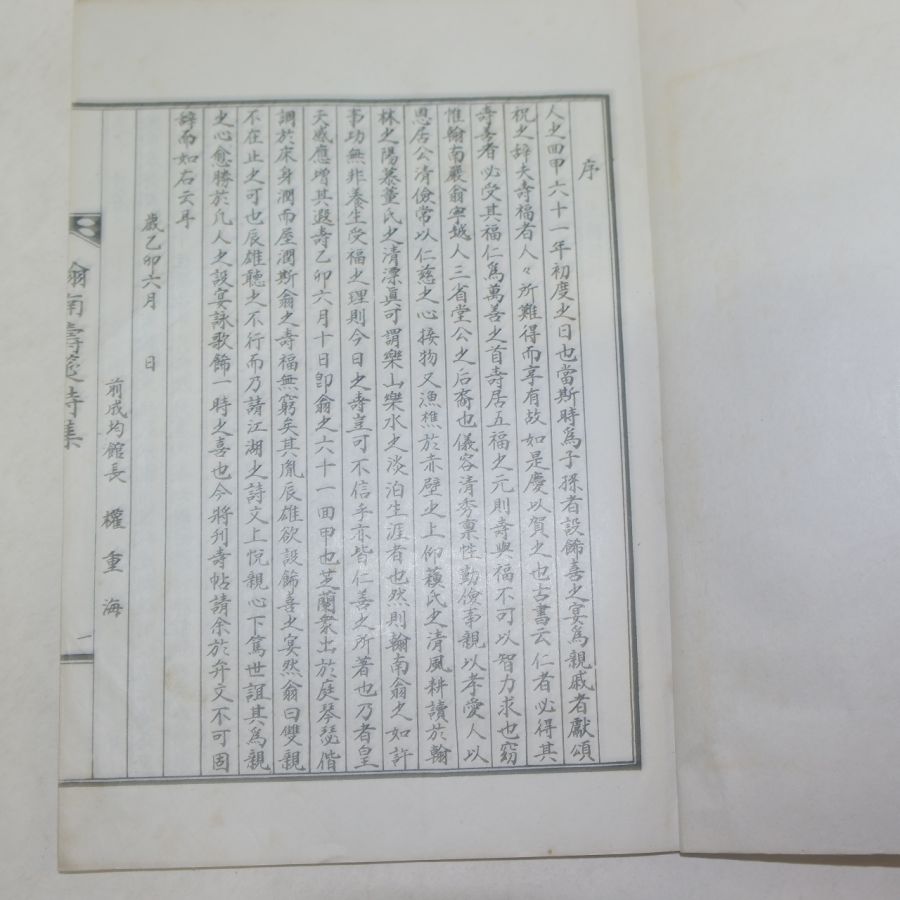 序
人之回甲六十一年初度之日也當斯時爲子孫者設飾喜之宴爲親戚者獻頌
祝之辞夫壽福者人々所難得而享有故如是慶以賀之也古書云仁者必得其
壽善者必受其福仁爲萬善之首壽居五福之元則壽與福不可以智力求也窃
惟翰南嚴翁寧越人三省堂公之后裔也儀容清秀禀性勤儉事親以孝愛人以
恩居公清儉常以仁慈之心接物又漁樵於赤壁之上仰蘓氏之清風耕讀於翰
林之陽慕董氏之清漂眞可謂樂山樂水之淡泊生涯者也然則翰南翁之如許
事功無非養生受福之理則今日之壽豈可不信乎亦皆仁善之所著也乃者皇
天感應增其遐壽乙卯六月十日卽翁之六十一回甲也芝蘭衆出於庭琴瑟偕
調於床身潤而屋潤斯翁之壽福無窮矣其胤辰雄欲設飾喜之宴然翁曰雙親
不在止之可也辰雄聽之不行而乃請江湖之詩文上悅親心下篤世誼其爲親
之心愈勝於凡人之設宴詠歌飾一時之喜也今將刊壽帖請余於弁文不可固
辞而如右云耳
歲乙卯六月 日
前成均館長 權重海
翰南壽筵詩集
一